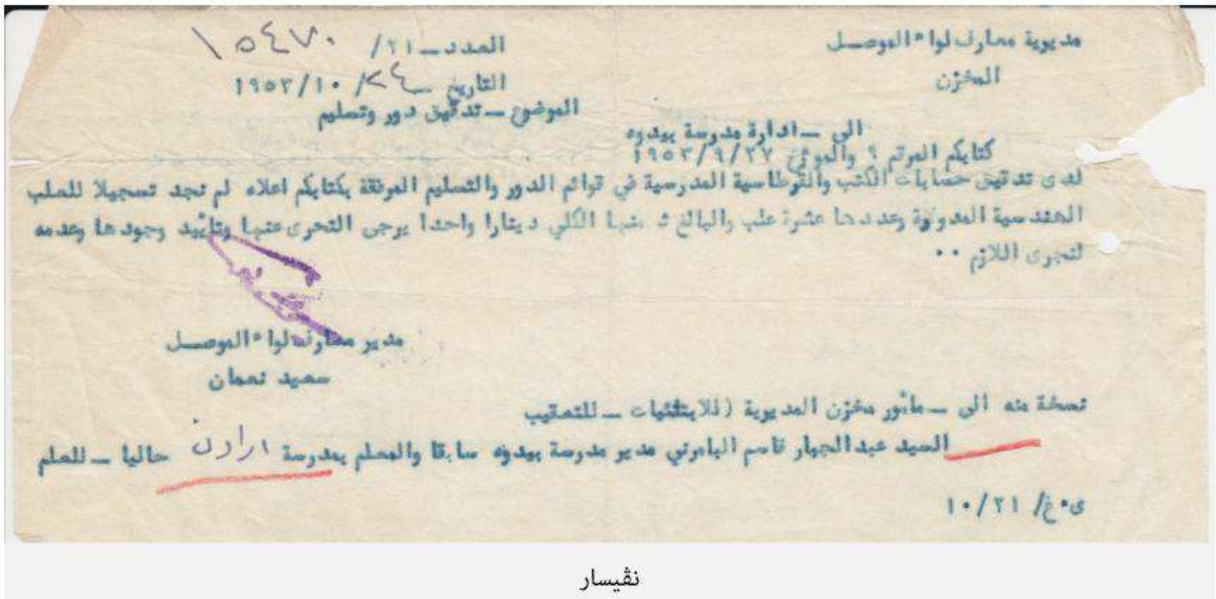 مديرية معارف لواء الموصل
المخزن
العدد ـ ٢١/ ١٥٤٧٠
التاريخ ٢٤/١٠/١٩٥٣
الموضوع ـ تدقيق دور وتسليم
الى ـ ادارة مدرسة بيدوه
كتابكم المرقم ٩ والمؤرخ ١٩٥٣/٩/٢٧
لدى تدقيق حسابات الكتب والقرطاسية المدرسية في قوائم الدور والتسليم المرفقة بكتابكم اعلاه لم نجد تسجيلا للعلب
الهندسية المدونة وعددها عشرة علب والبالغ ثمنها الكلي دينارا واحدا يرجى التحرى عنها وتأييد وجودها وعدمه
لنجرى اللازم ٠٠
مدير معارف لواء الموصل
سعيد نعمان
نسخة منه الى ـ مأمور مخزن المديرية ـ للتعقيب
السيد عبدالجبار قاسم البامرني مدير مدرسة بيدوه سابقا والمعلم بمدرسة ارادن حاليا ـ للعلم
ى٠غ/ ١٠/٢١
نڤيسار